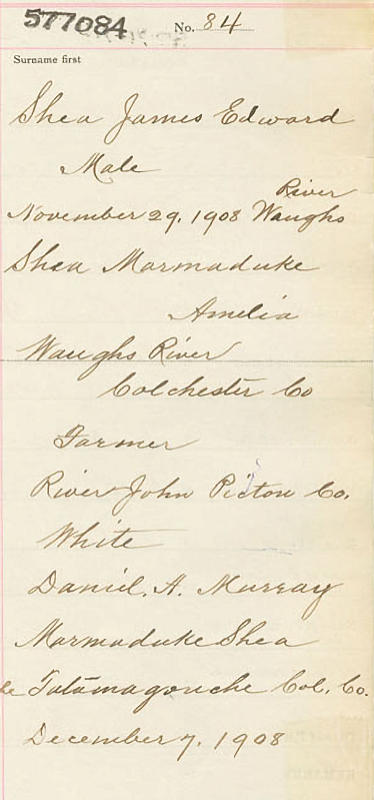 577084
No. 84
Surname first
Shea James Edward
Male
River
November 29, 1908 Waughs
Shea Marmaduke
Amelia
Waughs River
Colchester Co
Farmer
River John Picton Co.
White
Daniel. A. Murray
Marmaduke Shea
Tatamagouche Col. Co.
December 7, 1908